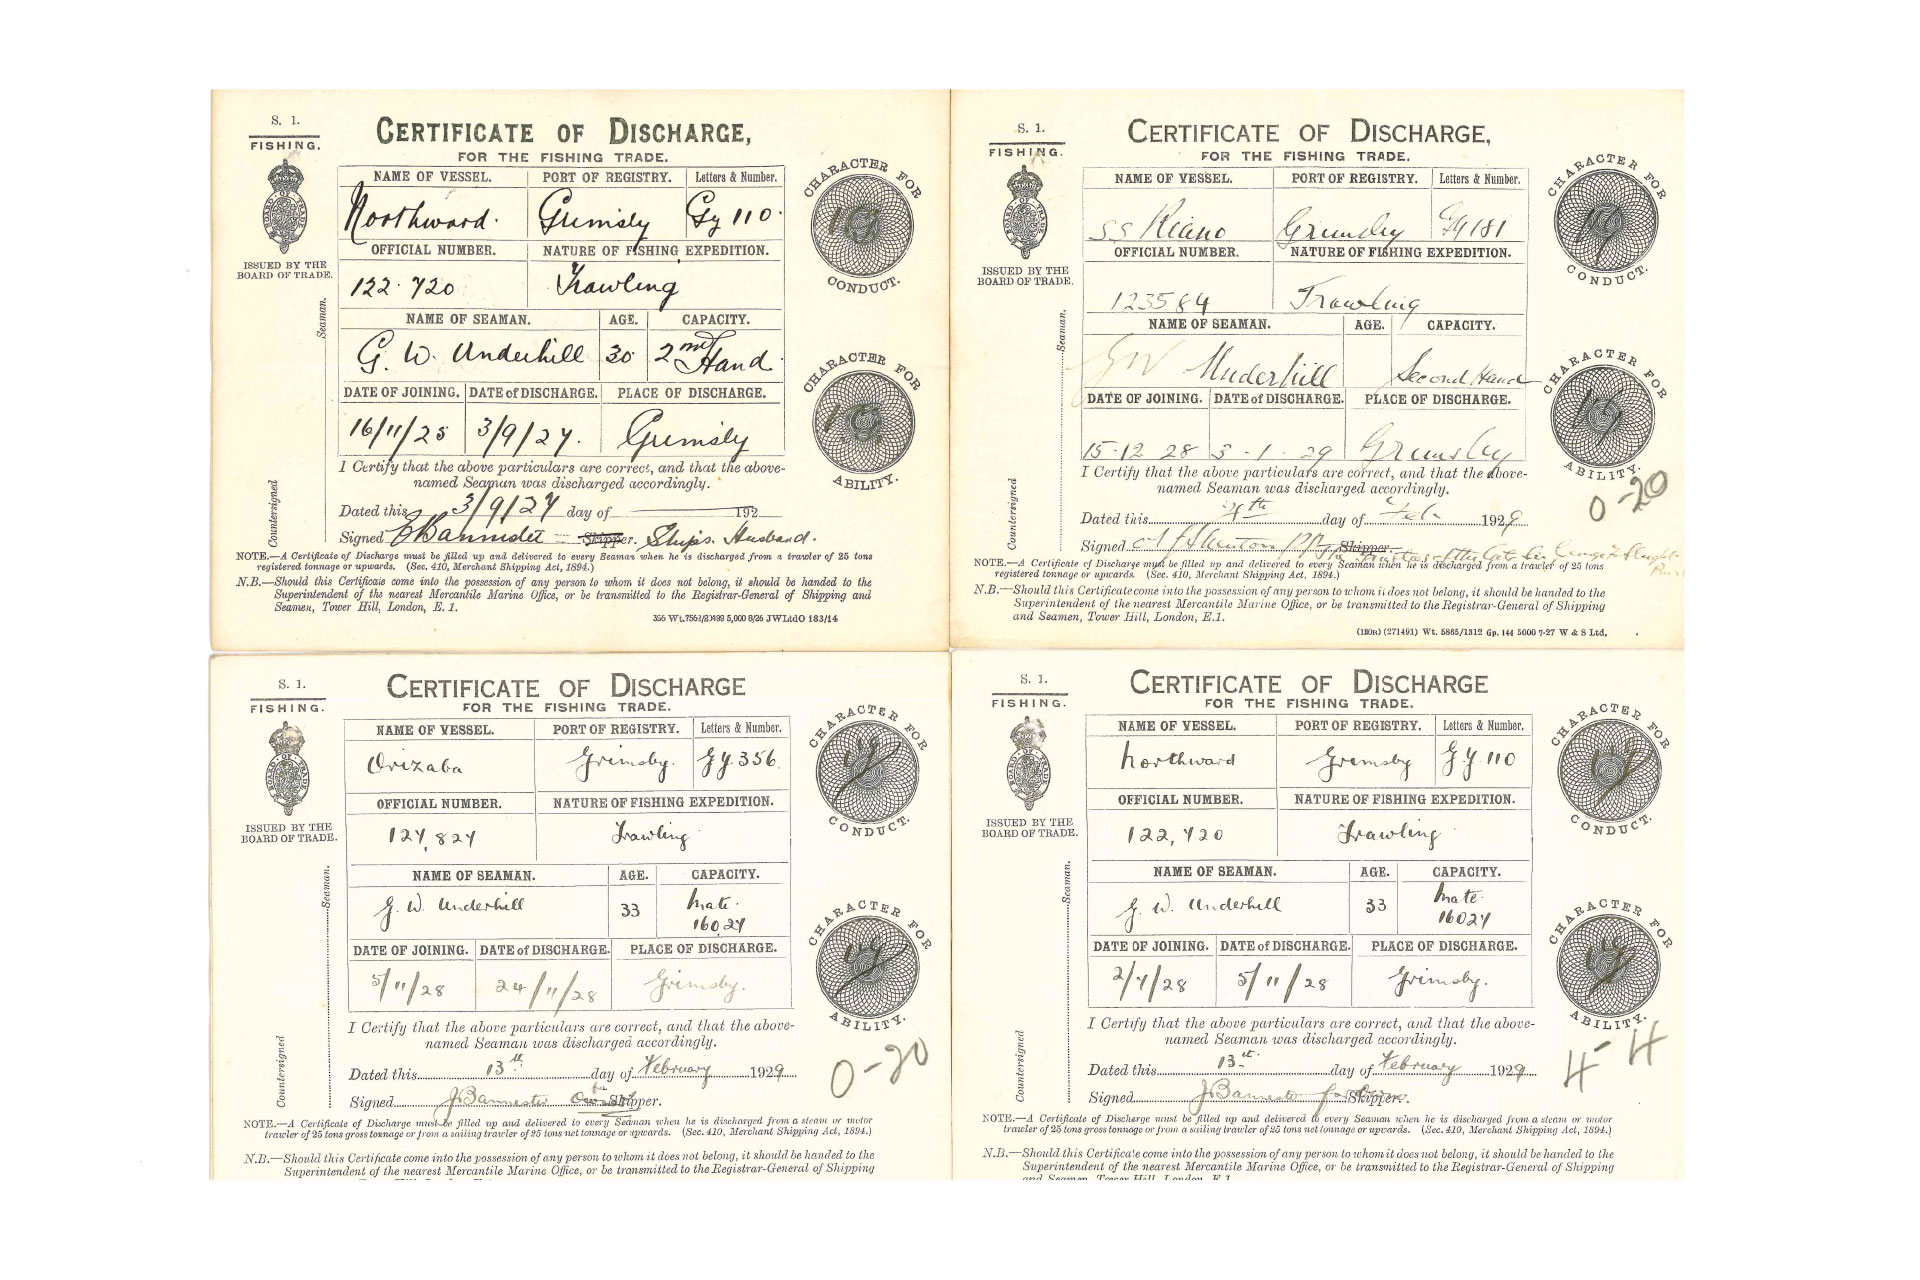 S. 1.
FISHING.
ISSUED BY THE
BOARD OF TRADE.
Countersigned
Seaman.
CERTIFICATE OF DISCHARGE,
FOR THE FISHING TRADE.
NAME OF VESSEL. PORT OF REGISTRY. Letters & Number.
Northward. Grimsby Gy 110.
OFFICIAL NUMBER. NATURE OF FISHING EXPEDITION.
122.720 Trawling
NAME OF SEAMAN. AGE. CAPACITY.
G. W. Underhill 30 2nd Hand
DATE OF JOINING. DATE of DISCHARGE. PLACE OF DISCHARGE.
16/11/25 3/9/27. Grimsby
I Certify that the above particulars are correct, and that the above-
named Seaman was discharged accordingly.
Dated this 3/9/27 day of 192
Signed Bannister Skipper. Ship's Husband.
CHARACTER FOR
VG
CONDUCT.
CHARACTER FOR
VG
ABILITY.
NOTE.—A Certificate of Discharge must be filled up and delivered to every Seaman when he is discharged from a trawler of 25 tons
registered tonnage or upwards. (Sec. 410, Merchant Shipping Act, 1894.)
N.B.—Should this Certificate come into the possession of any person to whom it does not belong, it should be handed to the
Superintendent of the nearest Mercantile Marine Office, or be transmitted to the Registrar-General of Shipping and
Seamen, Tower Hill, London, E. 1.
5,000 8/26 JWLtdO 183/14
S. 1.
FISHING.
ISSUED BY THE
BOARD OF TRADE.
Countersigned
Seaman.
CERTIFICATE OF DISCHARGE,
FOR THE FISHING TRADE.
NAME OF VESSEL. PORT OF REGISTRY. Letters & Number.
SS Riano Grimsby Gy 181
OFFICIAL NUMBER. NATURE OF FISHING EXPEDITION.
123584 Trawling
NAME OF SEAMAN. AGE. CAPACITY.
GW Underhill Second Hand
DATE OF JOINING. DATE of DISCHARGE. PLACE OF DISCHARGE.
15-12 28 3-1-29 Grimsby
I Certify that the above particulars are correct, and that the above-
named Seaman was discharged accordingly.
Dated this day of Feb 1929
Signed Skipper. Trustees of the late Sir George
CHARACTER FOR
VG
CONDUCT.
CHARACTER FOR
VG
ABILITY.
0-20
NOTE.—A Certificate of Discharge must be filled up and delivered to every Seaman when he is discharged from a trawler of 25 tons
registered tonnage or upwards. (Sec. 410, Merchant Shipping Act, 1894.)
N.B.—Should this Certificate come into the possession of any person to whom it does not belong, it should be handed to the
Superintendent of the nearest Mercantile Marine Office, or be transmitted to the Registrar-General of Shipping
and Seamen, Tower Hill, London, E.1.
(130R) (271491) Wt. 5865/1312 Gp. 144 5000 7-27 W & S Ltd.
S. 1.
FISHING.
ISSUED BY THE
BOARD OF TRADE.
Countersigned
Seaman.
CERTIFICATE OF DISCHARGE
FOR THE FISHING TRADE.
NAME OF VESSEL. PORT OF REGISTRY. Letters & Number.
Orizaba Grimsby. GY.356.
OFFICIAL NUMBER. NATURE OF FISHING EXPEDITION.
127,827 Trawling
NAME OF SEAMAN. AGE. CAPACITY.
G. W. Underhill 33 Mate.
16027
DATE OF JOINING. DATE of DISCHARGE. PLACE OF DISCHARGE.
5/11/28 24/11/28 Grimsby.
I Certify that the above particulars are correct, and that the above-
named Seaman was discharged accordingly.
Dated this 13th day of February 1929
Signed J Bannister for Owner Skipper.
CHARACTER FOR
VG
CONDUCT.
CHARACTER FOR
VG
ABILITY.
0-20
NOTE.—A Certificate of Discharge must be filled up and delivered to every Seaman when he is discharged from a steam or motor
trawler of 25 tons gross tonnage or from a sailing trawler of 25 tons net tonnage or upwards. (Sec. 410, Merchant Shipping Act, 1894.)
N.B.—Should this Certificate come into the possession of any person to whom it does not belong, it should be handed to the
Superintendent of the nearest Mercantile Marine Office, or be transmitted to the Registrar-General of Shipping
S. 1.
FISHING.
ISSUED BY THE
BOARD OF TRADE.
Countersigned
Seaman.
CERTIFICATE OF DISCHARGE
FOR THE FISHING TRADE.
NAME OF VESSEL. PORT OF REGISTRY. Letters & Number.
Northward Grimsby GY 110
OFFICIAL NUMBER. NATURE OF FISHING EXPEDITION.
122,720 Trawling
NAME OF SEAMAN. AGE. CAPACITY.
G. W. Underhill 33 Mate.
16027
DATE OF JOINING. DATE of DISCHARGE. PLACE OF DISCHARGE.
2/7/28 5/11/28 Grimsby.
I Certify that the above particulars are correct, and that the above-
named Seaman was discharged accordingly.
Dated this 13th day of February 1929
Signed J Bannister for Owner Skipper.
CHARACTER FOR
VG
CONDUCT.
CHARACTER FOR
VG
ABILITY.
4-4
NOTE.—A Certificate of Discharge must be filled up and delivered to every Seaman when he is discharged from a steam or motor
trawler of 25 tons gross tonnage or from a sailing trawler of 25 tons net tonnage or upwards. (Sec. 410, Merchant Shipping Act, 1894.)
N.B.—Should this Certificate come into the possession of any person to whom it does not belong, it should be handed to the
Superintendent of the nearest Mercantile Marine Office, or be transmitted to the Registrar-General of Shipping
and Seamen, Tower Hill, London, E.1.